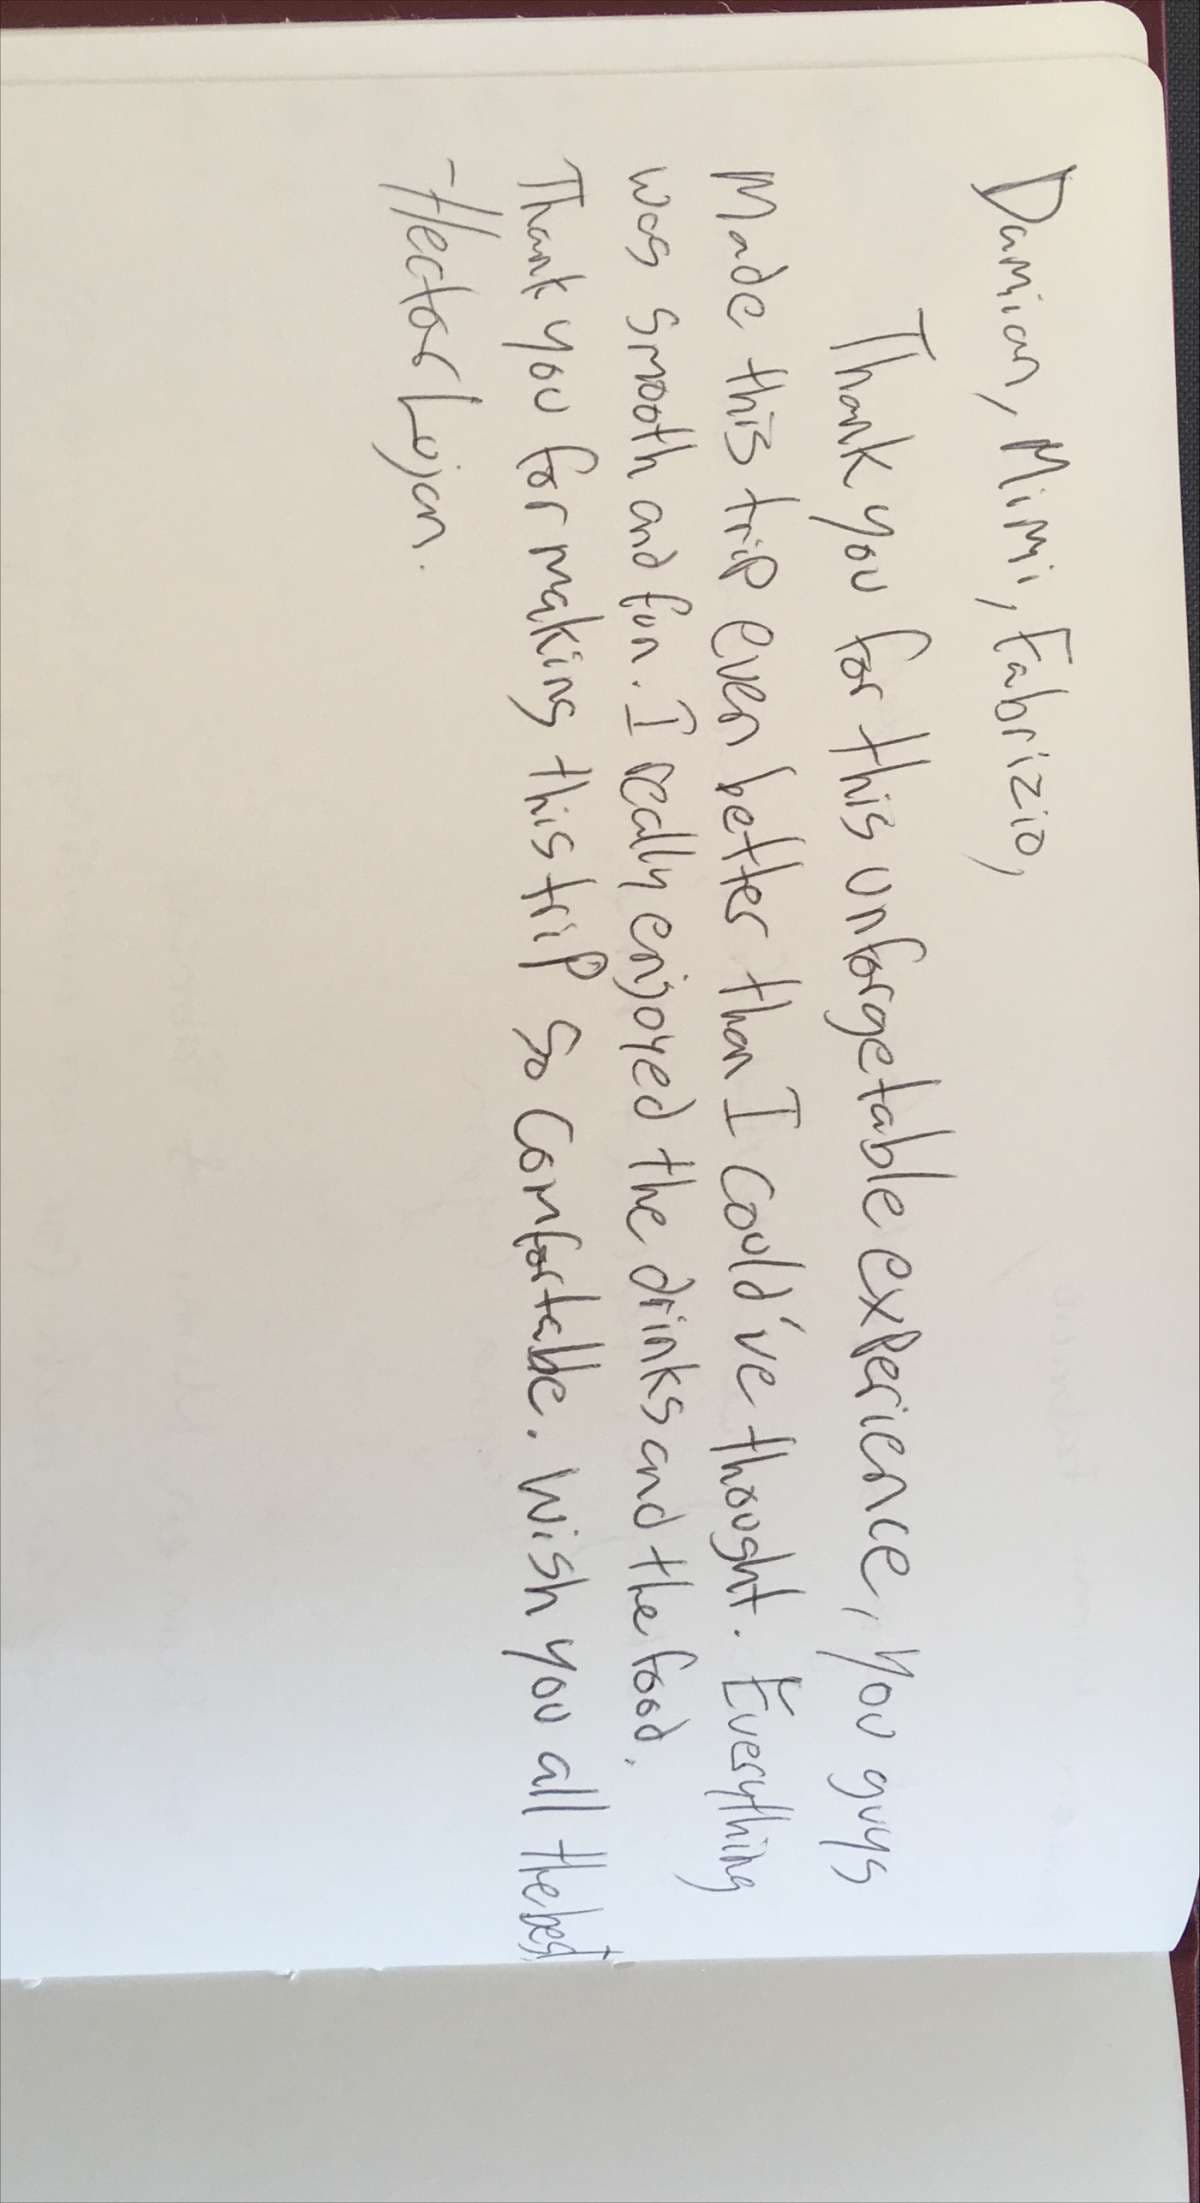 Damian, Mimi, Fabrizio,
Thank you for this unforgetable experience, you guys
Made this trip even better than I could've thought. Everything
was smooth and fun. I really enjoyed the drinks and the food.
Thank you for making this trip so comfortable. Wish you all the best
-Hector Lujan.